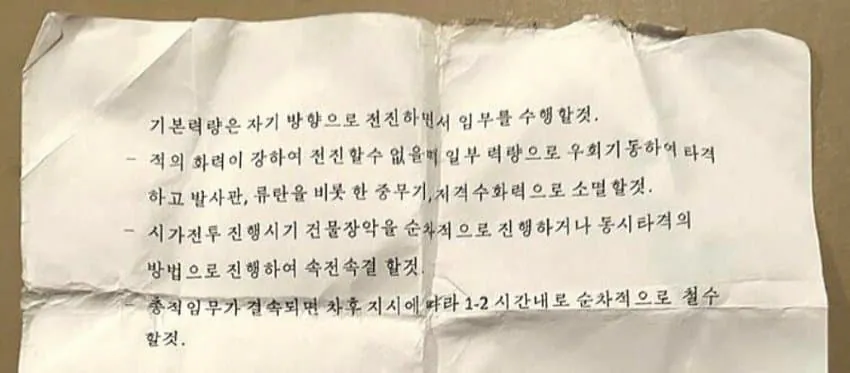 기본력량은 자기 방향으로 전진하면서 임무를 수행할것.
- 적의 화력이 강하여 전진할수 없을때 일부 력량으로 우회기동하여 타격
하고 발사관, 류탄을 비롯 한 중무기, 저격수화력으로 소멸할것.
- 시가전투 진행시기 건물장악을 순차적으로 진행하거나 동시타격의
방법으로 진행하여 속전속결 할것.
- 총적임무가 결속되면 차후 지시에 따라 1-2 시간내로 순차적으로 철수
할것.